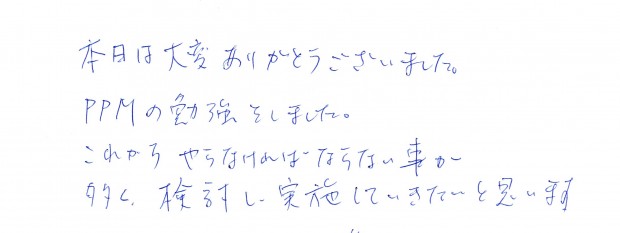 本日は大変ありがとうございました。
PPMの勉強をしました。
これからやらなければならない事が
多く、検討し実施していきたいと思います